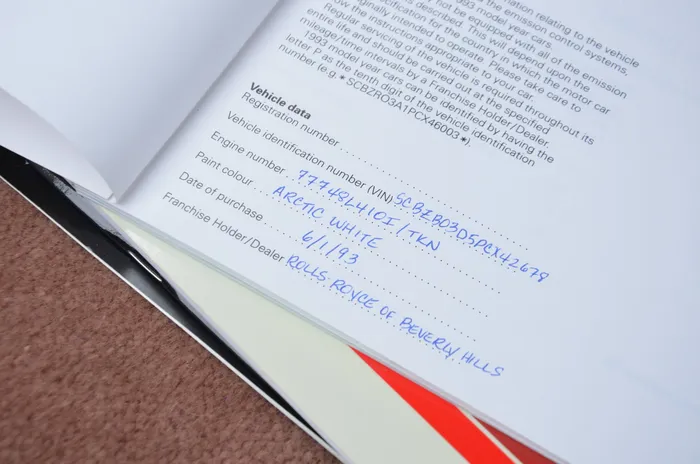 ation relating to the vehicle
the emission control systems,
1993 model year cars.
not be equipped with all of the emission
is described. This will depend upon the
specification for the country in which the motor car
originally intended to operate. Please take care to
follow the instructions appropriate to your car.
Regular servicing of the vehicle is required throughout its
entire life and should be carried out at the specified
mileage/time intervals by a Franchise Holder/Dealer.
1993 model year cars can be identified by having the
letter P as the tenth digit of the vehicle identification
number (e.g. * SCBZRO3A1PCX46003 *).
Vehicle data
Registration number
Vehicle identification number (VIN) SCBZB03D5PCX42678
Engine number 77748L410I/TKN
Paint colour ARCTIC WHITE
Date of purchase 6/1/93
Franchise Holder/Dealer ROLLS ROYCE OF BEVERLY HILLS